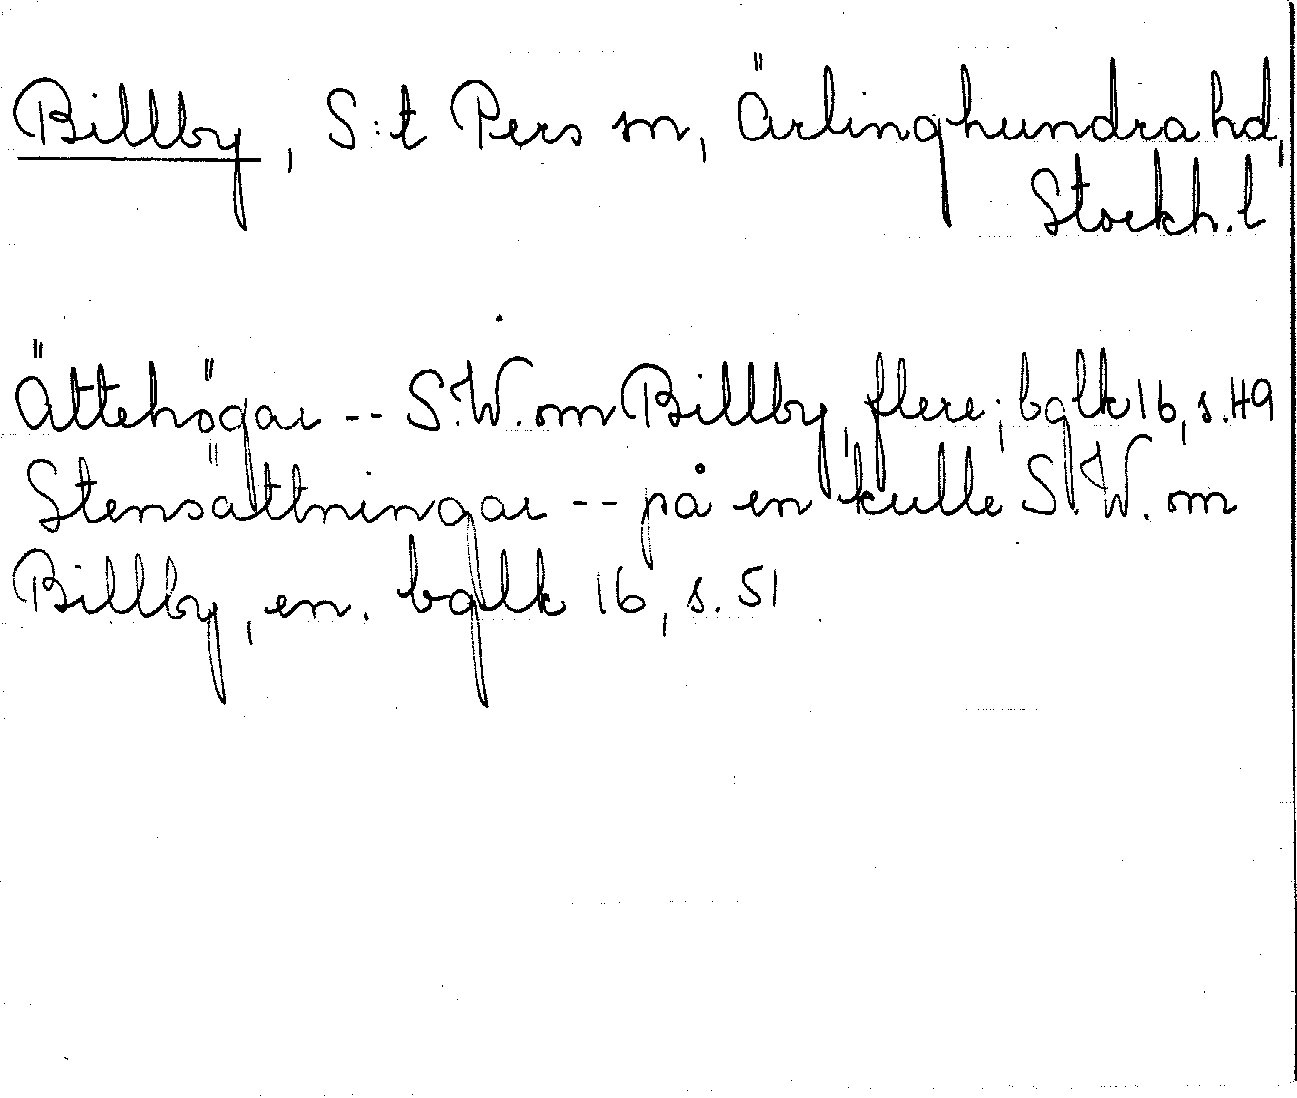 Billby, S:t Pers sn, Ärlinghundra hd,
Stockh. l
Ättehögar -- S.W. om Billby, flere; bglk 16, s. 49
Stensättningar -- på en kulle S.W. om
Billby, en. bglk 16, s. 51